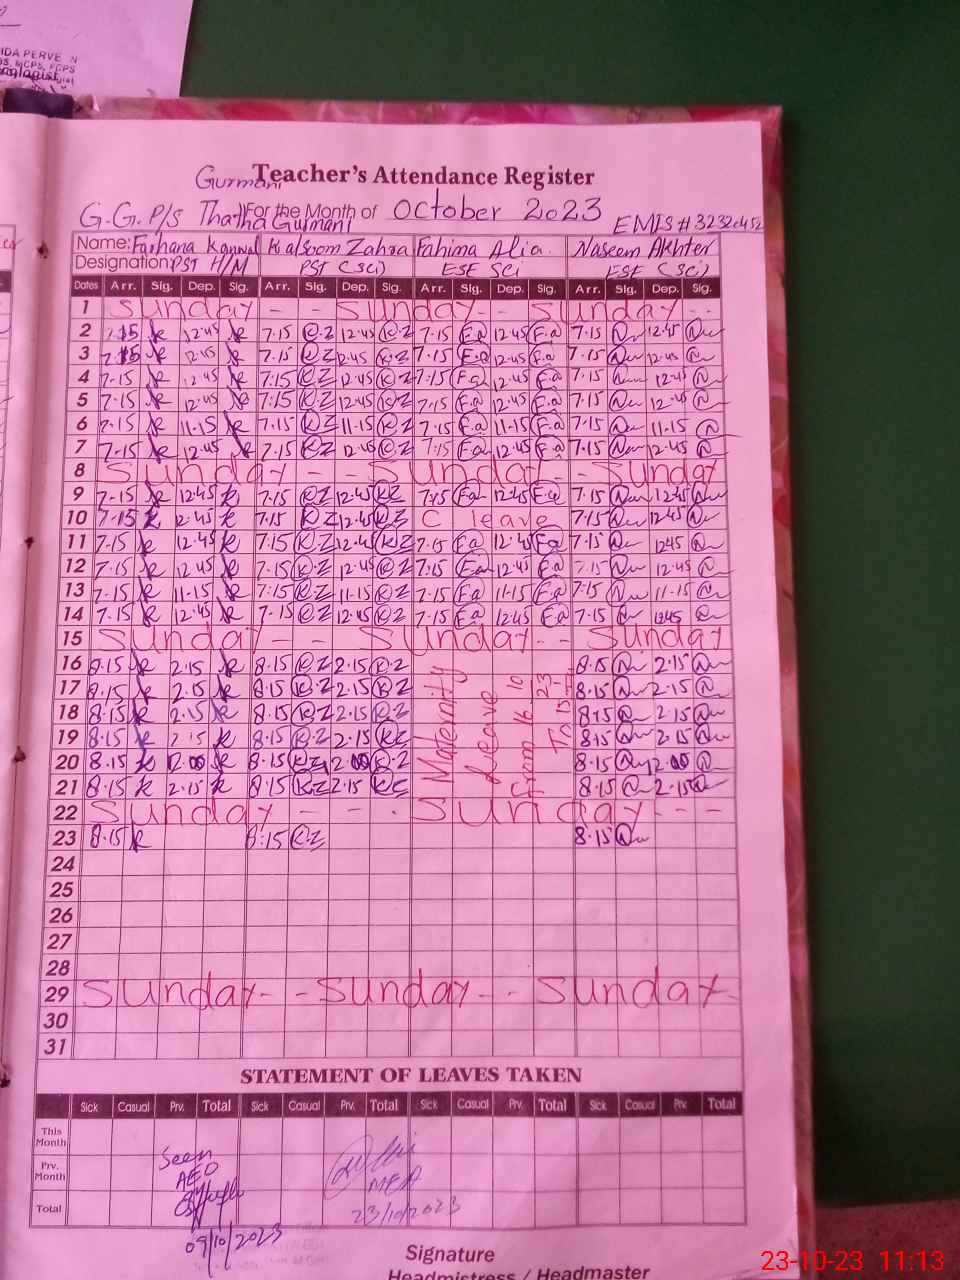 IDA PERVE N
Teacher's Attendance Register
Gurmani
G.G.P/S Thatha Gurmani For the Month of October 2023 EMIS #
Name: Farhana Kanwal Kalsoom Zahra Fahima Alia. Naseem Akhter
Designation: PST H/M PST (Sci) ESE Sci ESE (Sci)
Dates Arr. Sig. Dep. Sig. Arr. Sig. Dep. Sig. Arr. Sig. Dep. Sig. Arr. Sig. Dep. Sig.
1 Sunday - - Sunday - - Sunday - -
2 7.15 12.45 7.15 K.Z 12.45 K.Z 7.15 F.a 12.45 F.a 7.15 12.45
3 7.15 12.45 7.15 K.Z 12.45 K.Z 7.15 F.a 12.45 F.a 7.15 12.45
4 7.15 12.45 7.15 K.Z 12.45 K.Z 7.15 F.a 12.45 F.a 7.15 12.45
5 7.15 12.45 7.15 K.Z 12.45 K.Z 7.15 F.a 12.45 F.a 7.15 12.45
6 7.15 11-15 7.15 K.Z 11-15 K.Z 7.15 F.a 11-15 F.a 7.15 11-15
7 7.15 12.45 7.15 K.Z 12.45 K.Z 7.15 F.a 12.45 F.a 7.15 12.45
8 Sunday - - Sunday - Sunday
9 7.15 12.45 7.15 K.Z 12.45 K.Z 7.15 F.a 12.45 F.a 7.15 12.45
10 7.15 12.45 7.15 K.Z 12.45 K.Z C leave 7.15 12.45
11 7.15 12.45 7.15 K.Z 12.45 K.Z 7.15 F.a 12.45 F.a 7.15 12.45
12 7.15 12.45 7.15 K.Z 12.45 K.Z 7.15 F.a 12.45 F.a 7.15 12.45
13 7.15 11-15 7.15 K.Z 11-15 K.Z 7.15 F.a 11-15 F.a 7.15 11-15
14 7.15 12.45 7.15 K.Z 12.45 K.Z 7.15 F.a 12.45 F.a 7.15 12.45
15 Sunday - - Sunday - - Sunday
16 8.15 2.15 8.15 K.Z 2.15 K.Z 8.15 2.15
17 8.15 2.15 8.15 K.Z 2.15 K.Z 8.15 2.15
18 8.15 2.15 8.15 K.Z 2.15 K.Z 8.15 2.15
19 8.15 2.15 8.15 K.Z 2.15 K.Z 8.15 2.15
20 8.15 2.00 8.15 K.Z 2.00 K.Z 8.15 2.00
21 8.15 2.15 8.15 K.Z 2.15 K.Z 8.15 2.15
Maternity
Leave
From 16 10 23
22 Sunday - - Sunday - -
23 8.15 8.15 K.Z 8.15
24
25
26
27
28
29 Sunday - - Sunday - - Sunday -
30
31
STATEMENT OF LEAVES TAKEN
Sick Casual Prv. Total Sick Casual Prv. Total Sick Casual Prv. Total Sick Casual Prv. Total
This Month
Prv. Month
Total
Seen
AEO
09/10/2023
MEA
23/10/2023
Signature
Headmistress / Headmaster
23-10-23 11:13